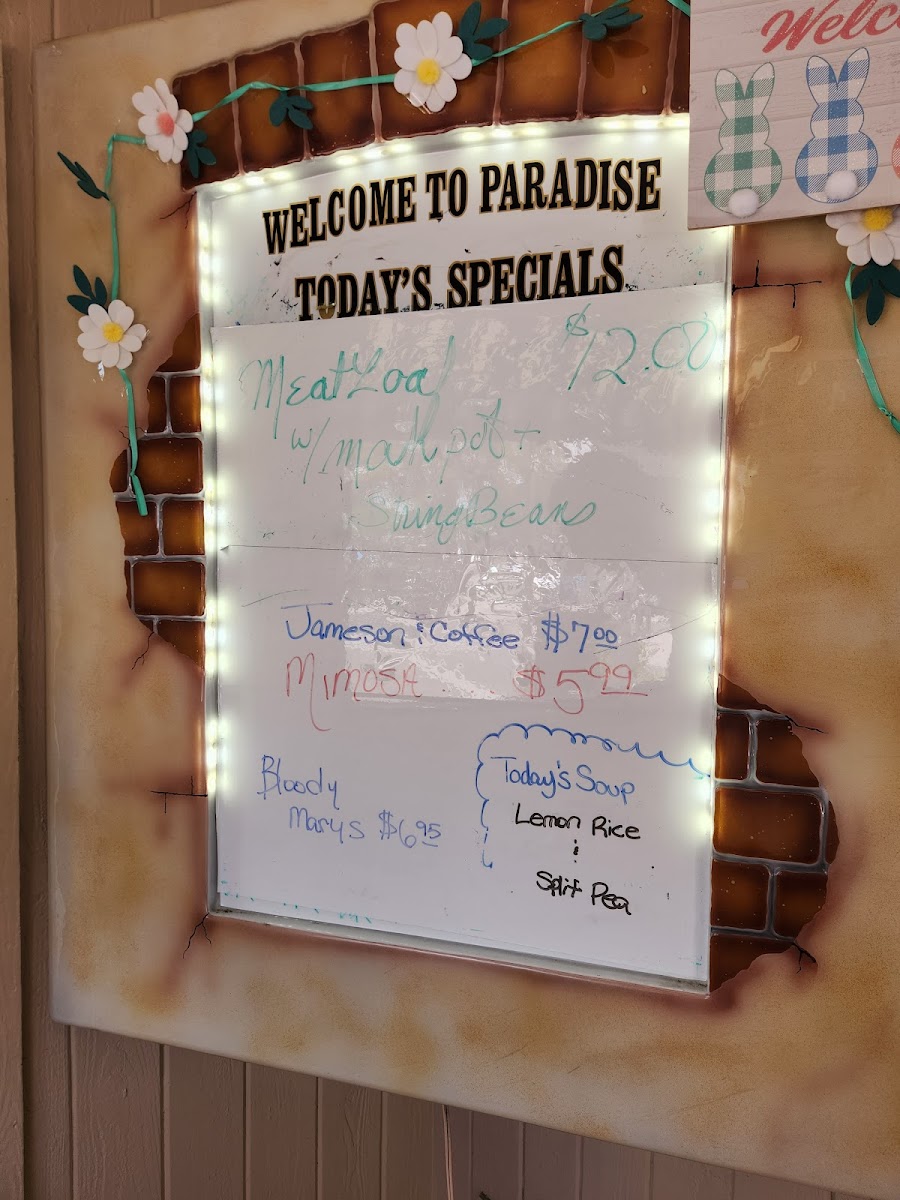 Welc
WELCOME TO PARADISE
TODAY'S SPECIALS
MeatLoaf $12.00
w/ mash pot +
String Beans
Jameson & Coffee $7.00
MIMOSA $5.99
Bloody
Marys $6.95
Today's Soup
Lemon Rice
&
Split Pea